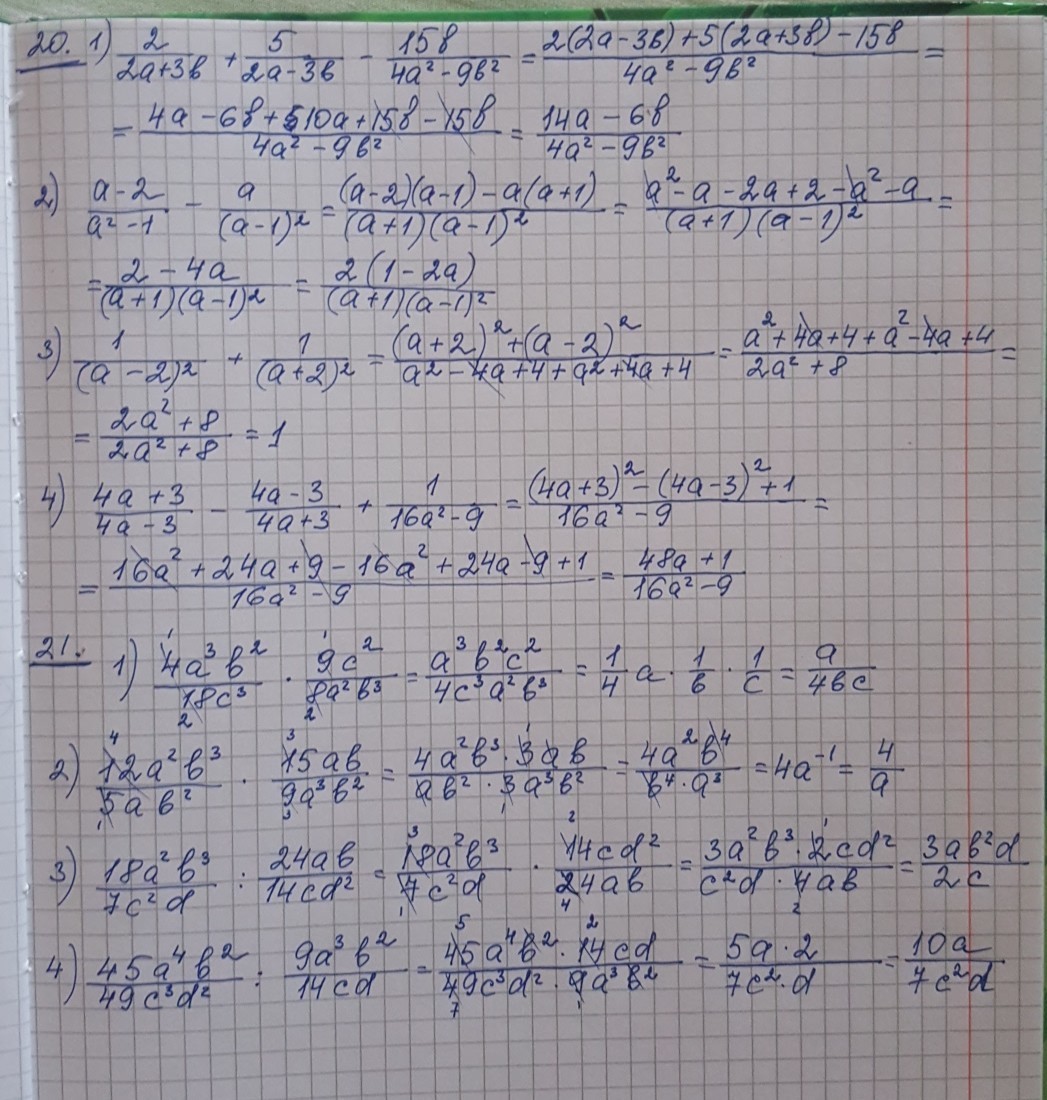 20. 1) 2/(2a+3в) + 5/(2a-3в) - 15в/(4a²-9в²) = (2(2a-3в)+5(2a+3в)-15в)/(4a²-9в²) =
= (4a-6в+10a+15в-15в)/(4a²-9в²) = (14a-6в)/(4a²-9в²)
2) (a-2)/(a²-1) - a/(a-1)² = ((a-2)(a-1)-a(a+1))/((a+1)(a-1)²) = (a²-a-2a+2-a²-a)/((a+1)(a-1)²) =
= (2-4a)/((a+1)(a-1)²) = 2(1-2a)/((a+1)(a-1)²)
3) 1/(a-2)² + 1/(a+2)² = ((a+2)²+(a-2)²)/(a²-4a+4+a²+4a+4) = (a²+4a+4+a²-4a+4)/(2a²+8) =
= (2a²+8)/(2a²+8) = 1
4) (4a+3)/(4a-3) - (4a-3)/(4a+3) + 1/(16a²-9) = ((4a+3)²-(4a-3)²+1)/(16a²-9) =
= (16a²+24a+9-16a²+24a-9+1)/(16a²-9) = (48a+1)/(16a²-9)
21. 1) 4a³в²/18c³ · 9c²/8a²в³ = a³в²c²/4c³a²в³ = 1/4 a · 1/в · 1/c = a/4вc
2) 12a²в³/5aв² · 15aв/9a³в² = (4a²в³·3aв)/(aв²·3a³в²) = 4a²в⁴/(в⁴·a³) = 4a⁻¹ = 4/a
3) 18a²в³/7c²d : 24aв/14cd² = 18a²в³/7c²d · 14cd²/24aв = (3a²в³·2cd²)/(c²d·4aв) = 3aв²d/2c
4) 45a⁴в²/49c³d² : 9a³в²/14cd = (45a⁴в²·14cd)/(49c³d²·9a³в²) = (5a·2)/(7c²·d) = 10a/7c²d